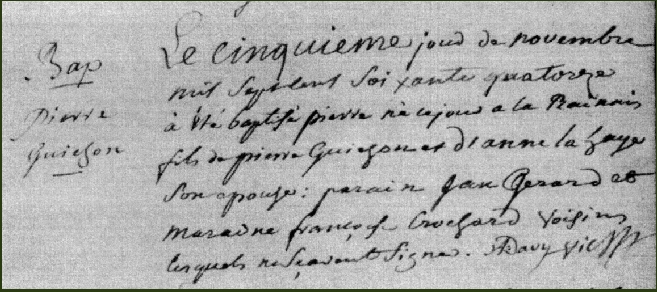 Bap
pierre
Guichon
Le cinquieme jour de novembre
mil sept cent soixante quatorze
à été baptisé pierre né ce jour a la
fils de pierre Guichon et d'anne la haye
Son epouse : parain Jan Gerard et
maraine françoise Crochard voisins
lesquels ne sçavent signer. Davy vic